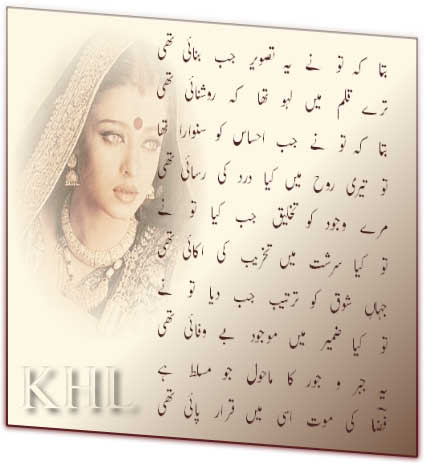 بتا کہ تو نے یہ تصویر جب بنائی تھی
ترے قلم میں لہو تھا کہ روشنائی تھی
بتا کہ تو نے جب احساس کو سنوارا تھا
تو تیری روح میں کیا درد کی رسائی تھی
مرے وجود کو تخلیق جب کیا تو نے
تو کیا سرشت میں تخریب کی اکائی تھی
جہاں شوق کو ترتیب جب دیا تو نے
تو کیا ضمیر میں موجود بے وفائی تھی
یہ جبر و جور کا ماحول جو مسلط ہے
قضا کی موت اسی میں قرار پائی تھی
KHL